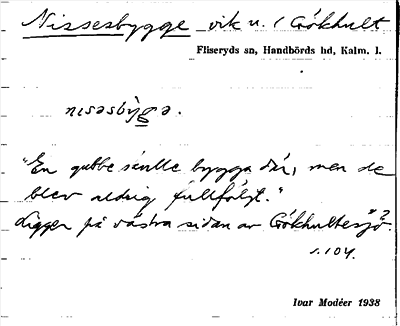 Nissesbygge vik u. / Gökhult
Fliseryds sn, Handbörds hd, Kalm. l.
nisəsby̌gə.
"En gubbe skulle bygga där, men de
blev aldrig fullföljt."
Ligger på västra sidan av Gökhultesjö?
s. 104.
Ivar Modéer 1938